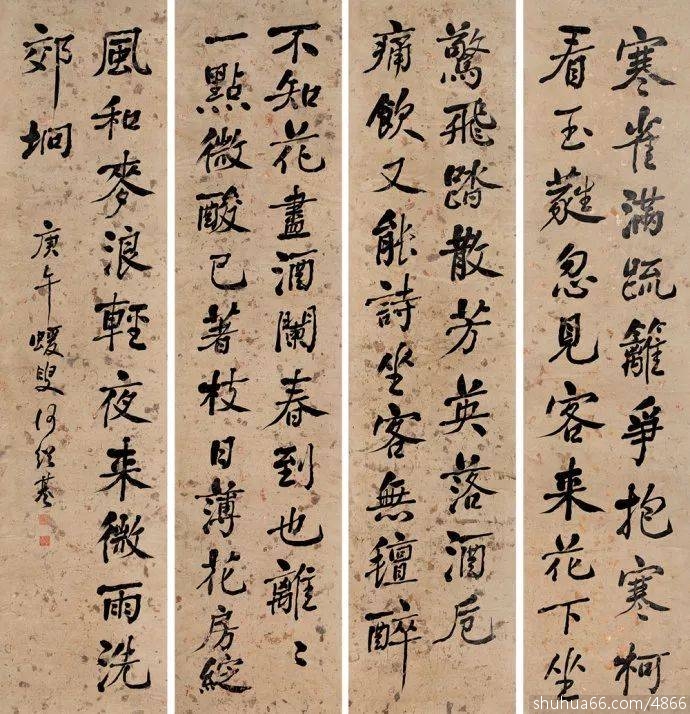 寒雀滿疏籬爭抱寒柯
看玉蕤忽見客来花下坐
驚飛踏散芳英落酒卮
痛飲又能詩坐客無氊醉
不知花盡酒闌春到也離〻
一點微酸已著枝日薄花房綻
風和麥浪輕夜来微雨洗
郊坰
庚午蝯叟何紹基
shuhua66.com/4866